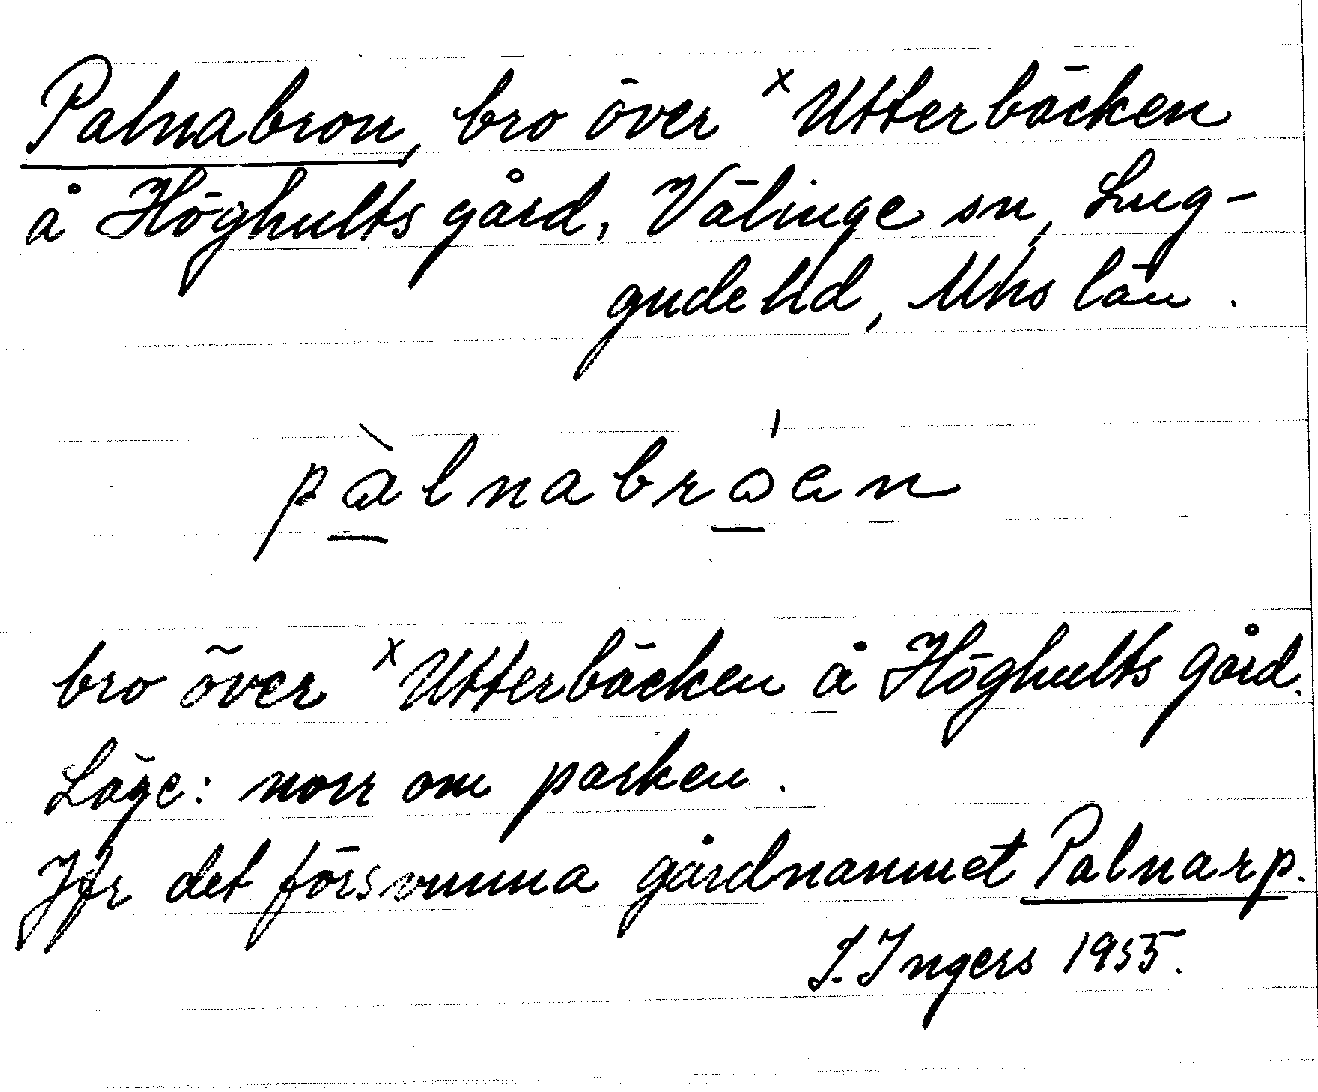 Palnabron, bro över ˣUtterbäcken
å Höghults gård, Välinge sn, Lug-
gude hd, Mhs län.
pàlnabróen
bro över ˣUtterbäcken å Höghults gård.
Läge: norr om parken.
Jfr det försvunna gårdnamnet Palnarp.
I. Ingers 1955.